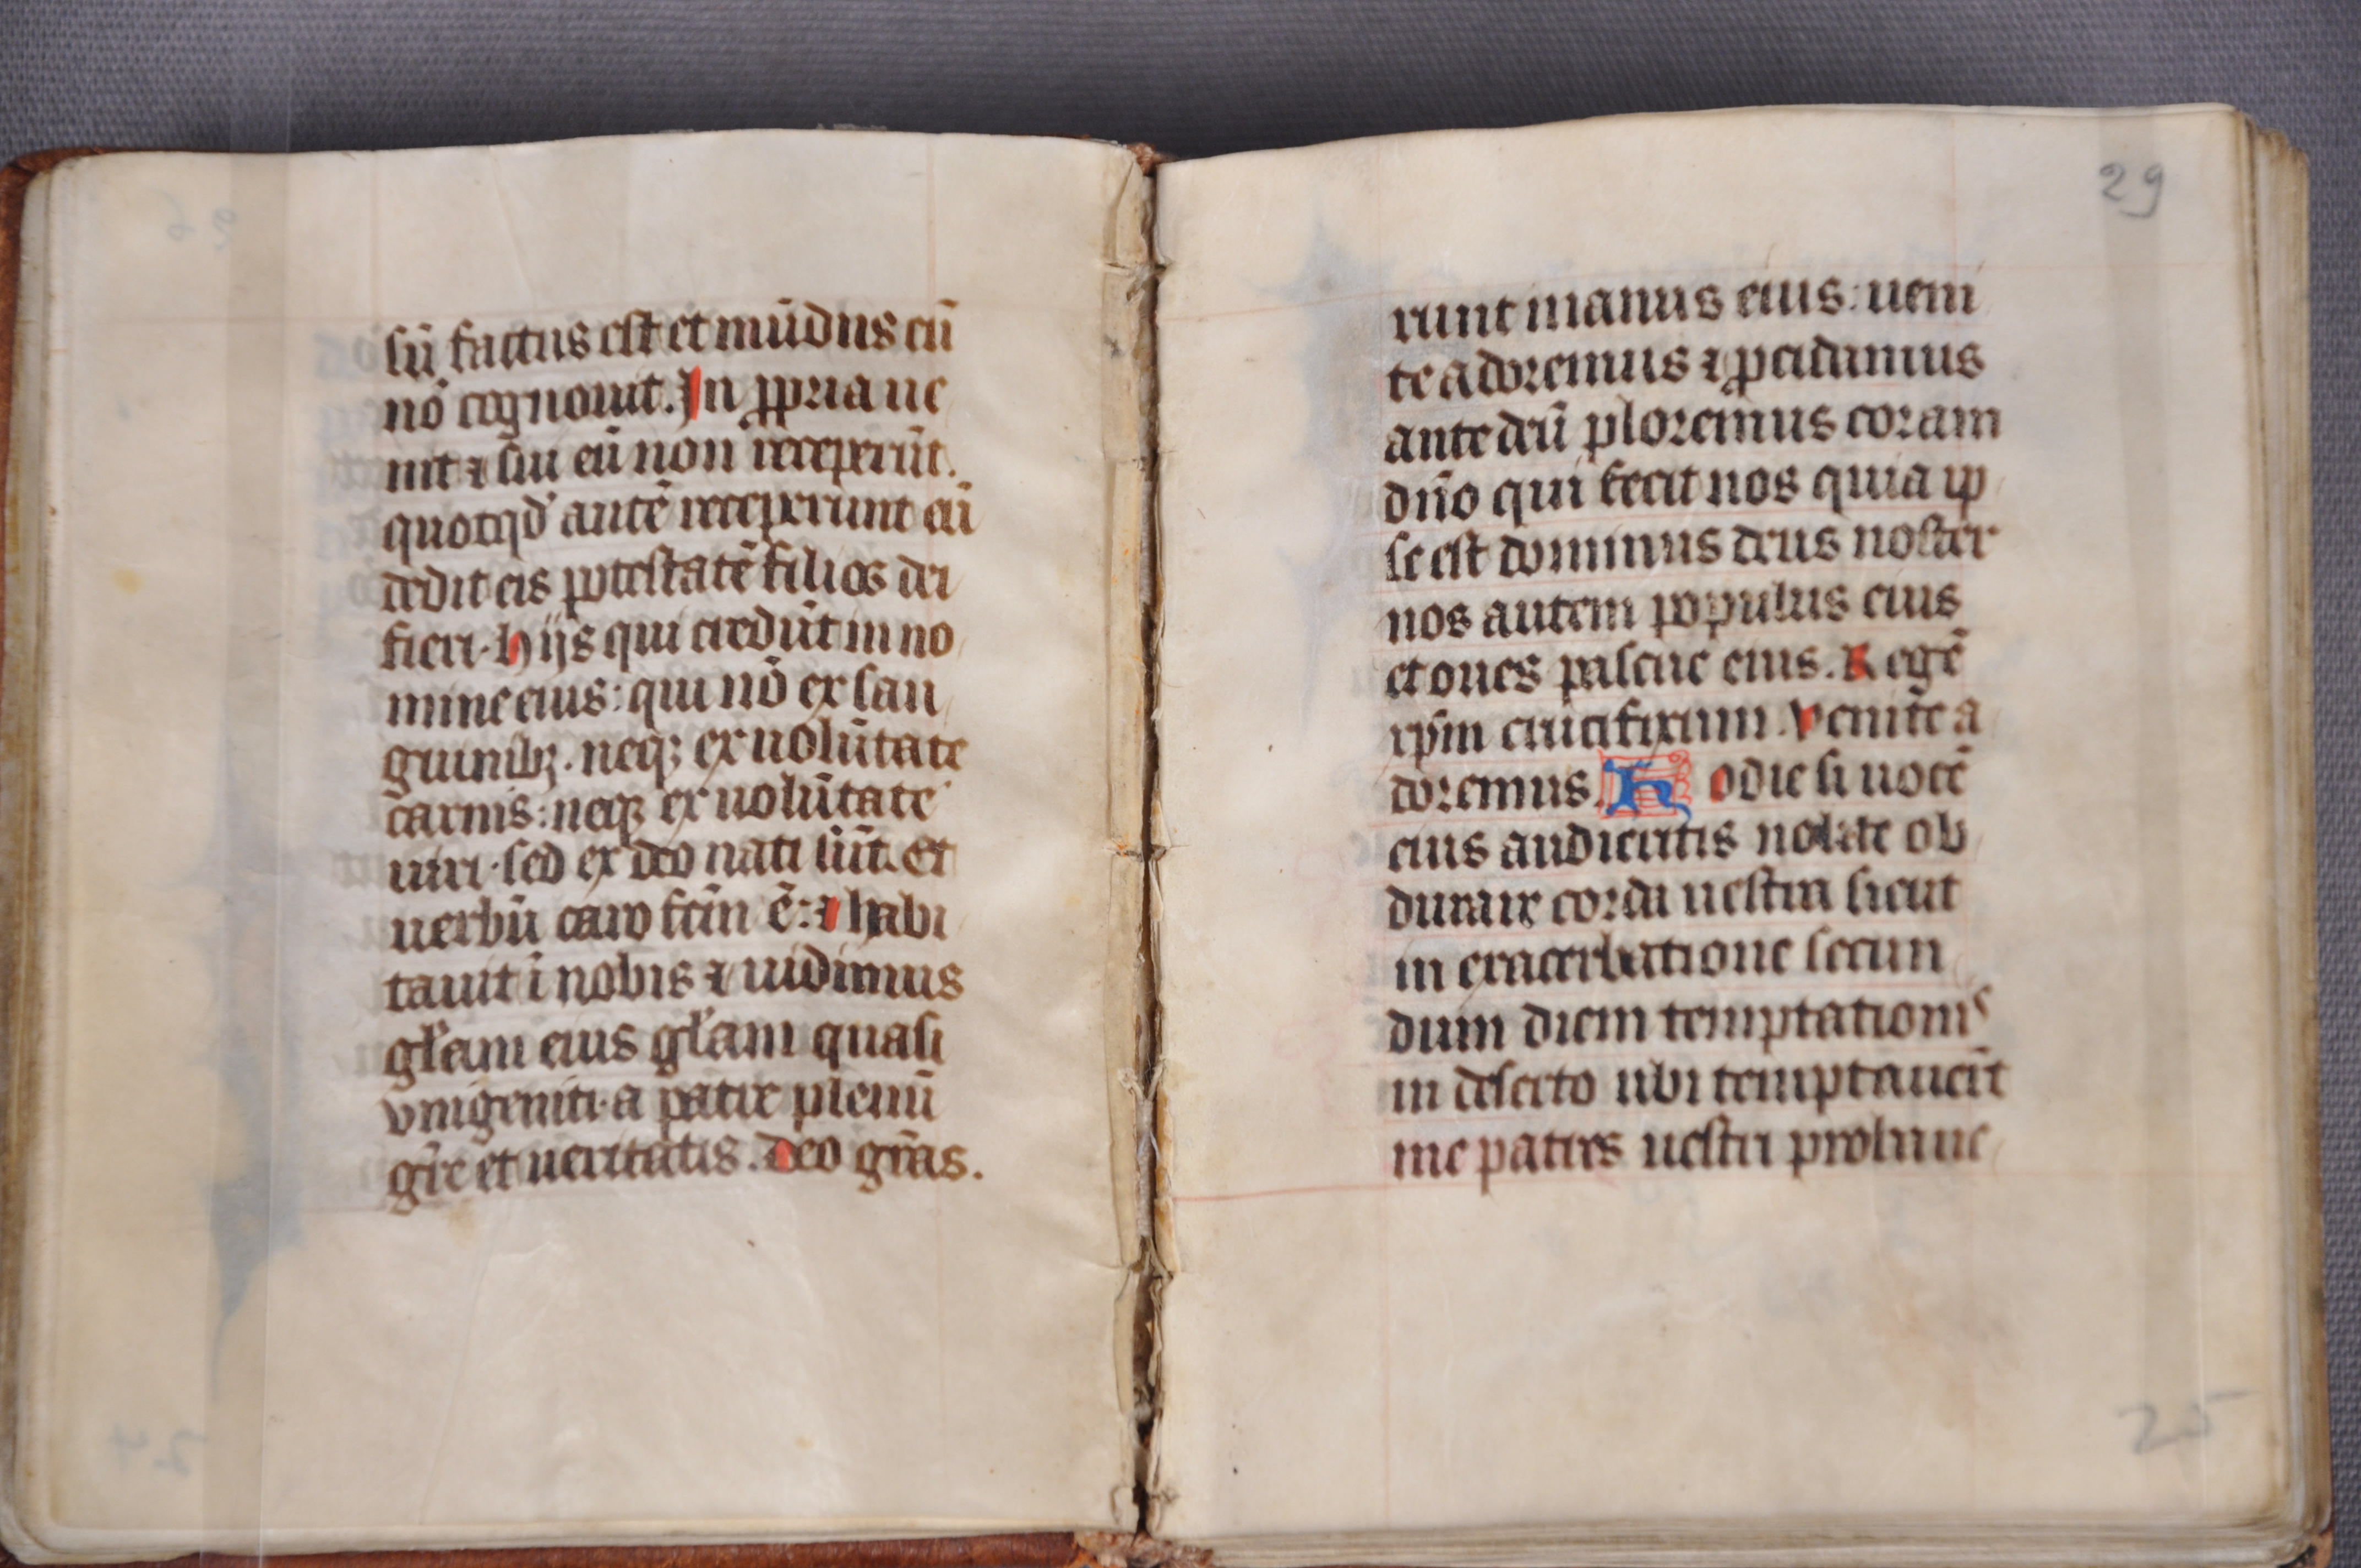 sū factus est et mūdus eū
nō cognouit. In ꝓpria ue
nit ⁊ sui eū non receperūt.
quotqd' autē receperunt eū
dedit eis potestatē filioꝝ dei
fieri. hijs qui credūt in no
mine eius: qui nō ex san
guinibꝫ. neqꝫ ex uolūtate
carnis: neqꝫ ex uolūtate
uiri. sed ex deo nati sūt. Et
uerbū caro fcm̄ ē: ⁊ habi
tauit ī nobis ⁊ uidimus
gl'eam eius gl'am quasi
vnigeniti. a patre plenū
gr̄e et ueritatis. Deo gr̄as.
29
runt manus eius: ueni
te adoremus ⁊ ꝓcidamus
ante deū ploremus coram
dn̄o qui fecit nos quia ip
se est dominus deus noster
nos autem populus eius
et oues pascue eius. Regē
xp̄m crucifixum. Venite a
doremus. H odie si uocē
eius audieritis nolite ob
durare corda uestra sicut
in exacerbatione secun
dum diem temptationis
in deserto ubi temptauerūt
me patres uestri probaue
25